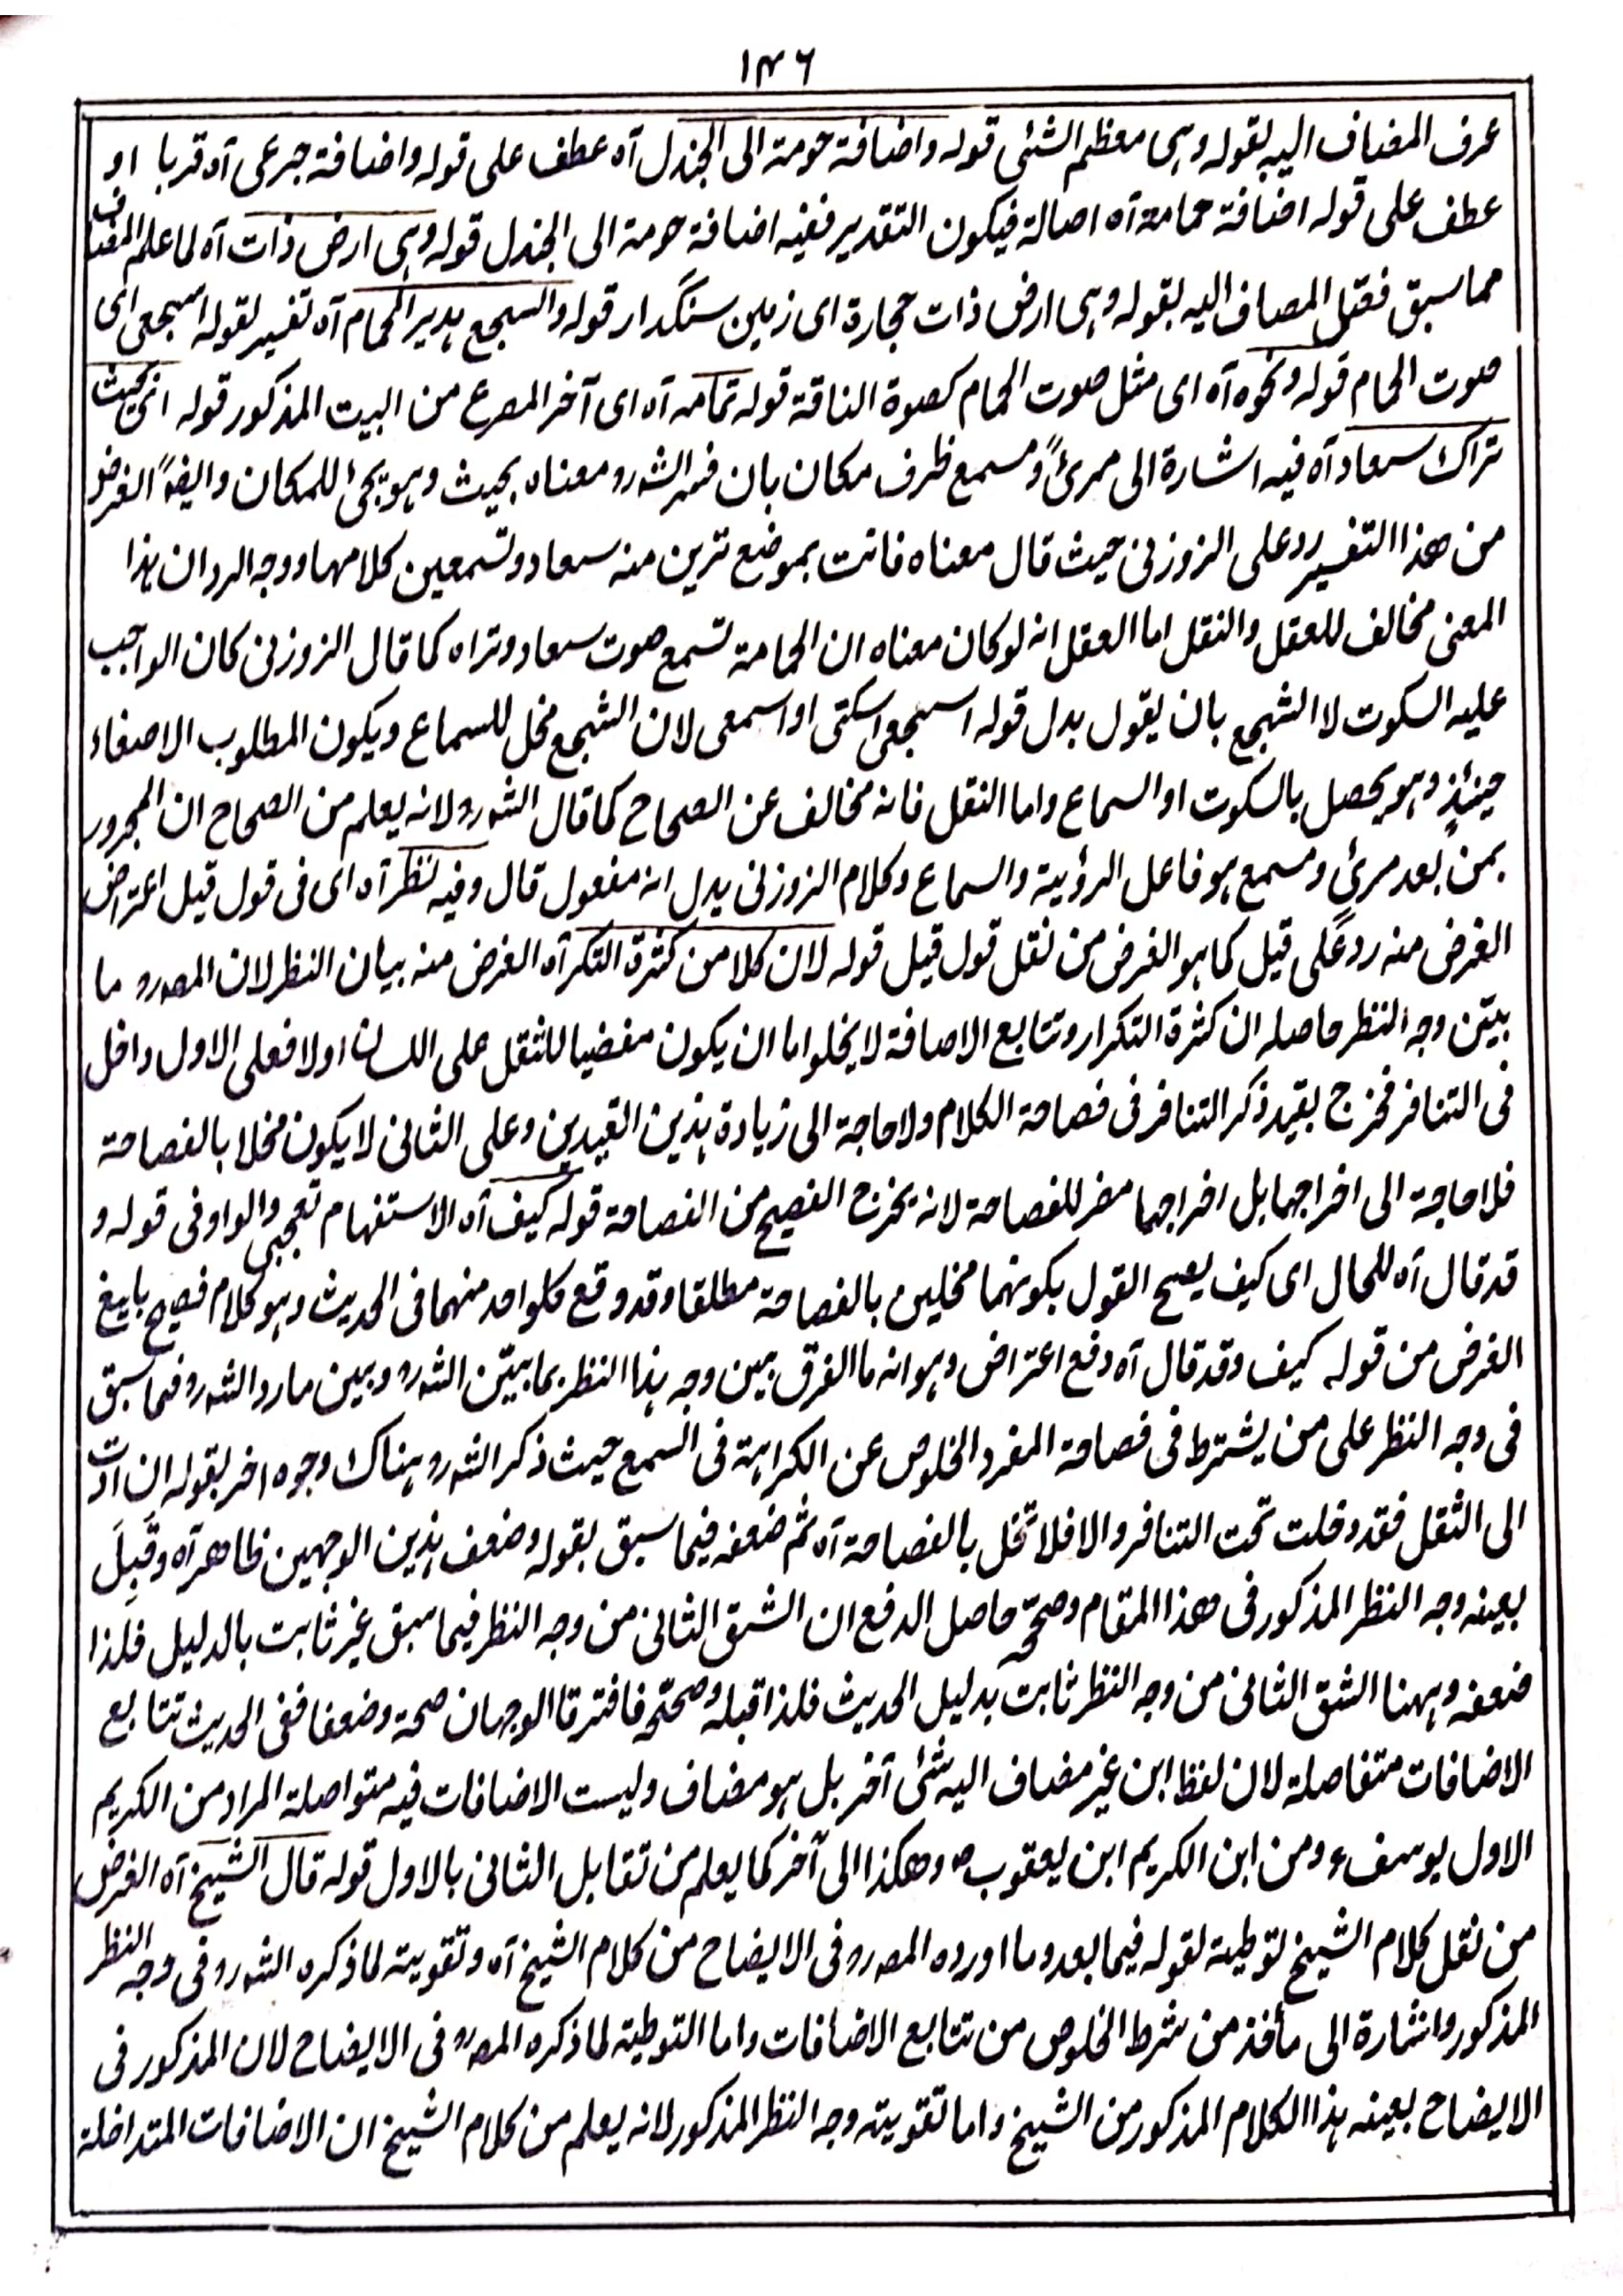 ١٣٦
عرف المضاف اليه بقوله وہى معظم الشئى قوله واضافة حومة الى الجندل آه عطف على قوله واضافة جرعى آه قربا او
عطف على قوله اضافة حمامة آه اصالة فيكون التقدير ففيه اضافة حومة الى الجندل قوله وہى ارض ذات آه لما علم المضاف
مما سبق فعقل المصاف اليه بقوله وہى ارض ذات حجارة اى زمين سنگدار قوله والسجع ہدير الحمام آه تفسير لقوله اسجعى اى
صوت الحمام قوله ونحوه آه اى مثل صوت الحمام كصوة الناقة قوله تمامہ آه اى آخر المصرع من البيت المذكور قوله اى بحيث
تراك سعاد آه فيه اشارة الى مرئ ومسمع ظرف مكان بان فسر الشہ رہ معناه بحيث وہو يجئ للمكان وايضہً الغرض
من هذا التفسير رد على الزوزنى حيث قال معناه فانت بموضع ترين منه سعاد وتسمعين كلامها ووجہ الرد ان ہذا
المعنى مخالف للعقل والنقل اما العقل انہ لو كان معناه ان الحمامة تسمع صوت سعاد وتراه كما قال الزوزنى كان الواجب
عليه السكوت لا السجع بان يقول بدل قوله اسجعى اسكتى او اسمعى لان السجع مخل للسماع ويكون المطلوب الاصغاء
حينئذٍ وہو يحصل بالسكوت او السماع واما النقل فانہ مخالف عن الصحاح كما قال الشہ رہ لانہ يعلم من الصحاح ان المجرور
بمن بعد مرئ ومسمع ہو فاعل الرؤية والسماع وكلام الزوزنى يدل انہ مفعول قال وفيه نظر آه اى فى قول قيل اعتراض
الغرض منہ رد على قيل كما ہو الغرض من نقل قول قيل قوله لان كلا من كثرة التكرر آه الغرض منه بيان النظر لان المصہ رہ ما
بيّن وجہ النظر حاصلہ ان كثرة التكرار وتتابع الاصافة لا يخلو اما ان يكون مفضيا للثقل على اللسان او لا فعلى الاول داخل
فى التنافر فخرج بقيد ذكر التنافر فى فصاحة الكلام ولا حاجة الى زيادة ہذين القيدين وعلى الثانى لا يكون مخلا بالفصاحة
فلا حاجة الى اخراجهما بل اخراجهما مضر للفصاحة لانہ يخرج الفصيح من الفصاحة قوله كيف آه الاستفهام تعجبى والواو فى قوله و
قد قال آه للحال اى كيف يصح القول بكونهما مخلين بالفصاحة مطلقا وقد وقع كلواحد منهما فى الحديث وہو كلام فصيح بليغ
الغرض من قوله كيف وقد قال آه دفع اعتراض وہو انہ ما الفرق بين وجہ ہذا النظر بما بيّن الشہ رہ وبين مارد الشہ رہ فيما سبق
فى وجہ النظر على من يشترط فى فصاحة المفرد الخلوص عن الكراہة فى السمع حيث ذكر الشہ رہ ہناك وجوه اخر بقوله ان ادت
الى الثقل فقد دخلت تحت التنافر والا فلا تخل بالفصاحة آه ثم ضعفہ فيما سبق بقوله وضعف ہذين الوجهين ظاهر آه وقَبِلَ
بعينہ وجہ النظر المذكور فى هذا المقام وصححّہ حاصل الدفع ان الشق الثانى من وجہ النظر فيما سبق غير ثابت بالدليل فلذا
ضعفہ وہہنا الشق الثانى من وجہ النظر ثابت بدليل الحديث فلذا قبله وصححّہ فافترقا الوجهان صحة وضعفا ففى الحديث تتابع
الاضافات متفاصلة لان لفظ ابن غير مضاف اليه شئى آخر بل ہو مضاف وليست الاضافات فيه متواصلة المراد من الكريم
الاول يوسف ء ومن ابن الكريم ابن يعقوب ص وهكذا الى آخر كما يعلم من تقابل الثانى بالاول قوله قال الشيخ آه الغرض
من نقل كلام الشيخ توطيۃ لقوله فيما بعد وما اورده المصہ رہ فى الايضاح من كلام الشيخ آه وتقوية لما ذكره الشہ رہ فى وجہ النظر
المذكور واشارة الى مأخذ من شرط الخلوص من تتابع الاضافات واما التوطيۃ لما ذكره المصہ رہ فى الايضاح لان المذكور فى
الايضاح بعينہ ہذا الكلام المذكور من الشيخ واما تقويتہ وجہ النظر المذكور لانہ يعلم من كلام الشيخ ان الاضافات المتداخلة